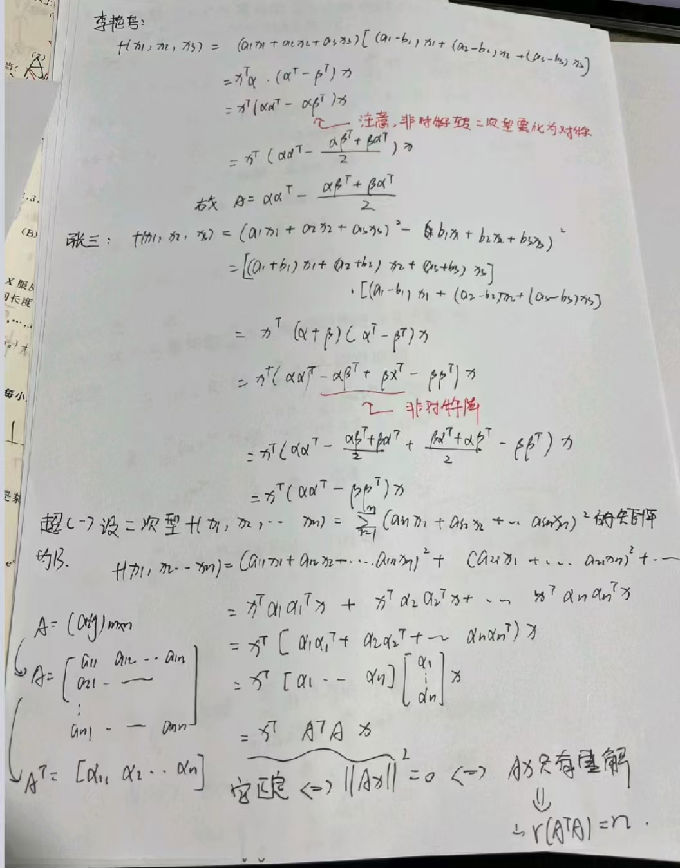 李艳芳:
f(x₁,x₂,x₃) = (a₁x₁+a₂x₂+a₃x₃)[(a₁-b₁)x₁+(a₂-b₂)x₂+(a₃-b₃)x₃]
= xᵀα·(αᵀ-βᵀ)x
= xᵀ(ααᵀ-αβᵀ)x
注意,非对称型二次型要化为对称
= xᵀ(ααᵀ - (αβᵀ+βαᵀ)/2)x
故 A = ααᵀ - (αβᵀ+βαᵀ)/2
张三: f(x₁,x₂,x₃) = (a₁x₁+a₂x₂+a₃x₃)² - (b₁x₁+b₂x₂+b₃x₃)²
= [(a₁+b₁)x₁+(a₂+b₂)x₂+(a₃+b₃)x₃]
·[(a₁-b₁)x₁+(a₂-b₂)x₂+(a₃-b₃)x₃]
= xᵀ(α+β)(αᵀ-βᵀ)x
= xᵀ(ααᵀ-αβᵀ+βαᵀ-ββᵀ)x
非对称阵
= xᵀ(ααᵀ - (αβᵀ+βαᵀ)/2 + (βαᵀ+αβᵀ)/2 - ββᵀ)x
= xᵀ(ααᵀ-ββᵀ)x
题(一)设二次型f(x₁,x₂,…xₙ) = Σ(aᵢ₁x₁+aᵢ₂x₂+…aᵢₙxₙ)²的矩阵
f(x₁,x₂…xₙ) = (a₁₁x₁+a₁₂x₂+…a₁ₙxₙ)² + (a₂₁x₁+…a₂ₙxₙ)²+…
= xᵀα₁α₁ᵀx + xᵀα₂α₂ᵀx+… xᵀαₙαₙᵀx
A = (aᵢⱼ)ₘₓₙ
= xᵀ[α₁α₁ᵀ+α₂α₂ᵀ+…αₙαₙᵀ)x
A = [a₁₁ a₁₂…a₁ₙ
a₂₁ - —
⋮
aₙ₁ - — aₙₙ]
= xᵀ[α₁…αₙ][α₁ ⋮ αₙ]x
= xᵀAᵀAx
Aᵀ = [α₁, α₂…αₙ]
它正定 <=> ||Ax||²=0 <=> Ax只有零解
⇓
∴ r(AᵀA)=n.